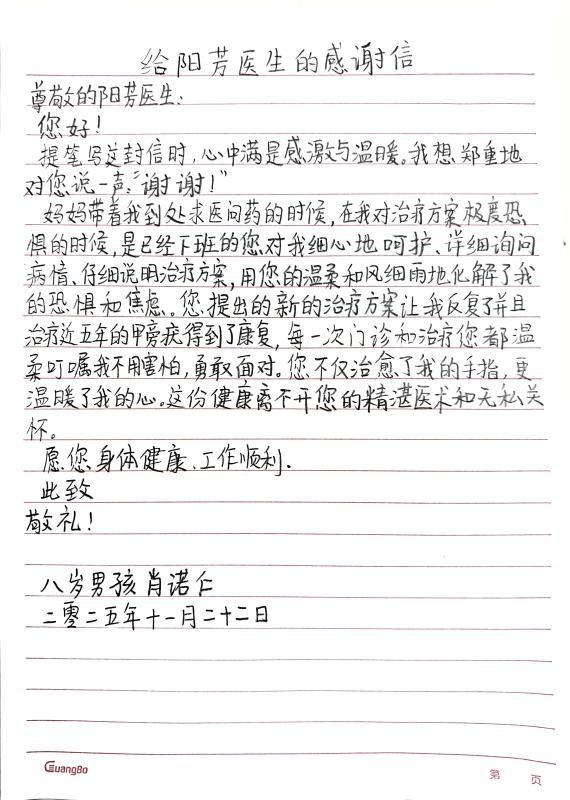 给阳芳医生的感谢信
尊敬的阳芳医生：
您好！
提笔写这封信时，心中满是感激与温暖。我想郑重地
对您说一声："谢谢！"
妈妈带着我到处求医问药的时候，在我对治疗方案极度恐
惧的时候，是已经下班的您对我细心地呵护、详细询问
病情、仔细说明治疗方案，用您的温柔和风细雨地化解了我
的恐惧和焦虑。您提出的新的治疗方案让我反复了并且
治疗近五年的甲旁疣得到了康复，每一次门诊和治疗您都温
柔叮嘱我不用害怕，勇敢面对。您不仅治愈了我的手指，更
温暖了我的心。这份健康离不开您的精湛医术和无私关
怀。
愿您身体健康、工作顺利．
此致
敬礼！
八岁男孩肖诺仁
二零二五年十一月二十二日
GuangBo
第 页